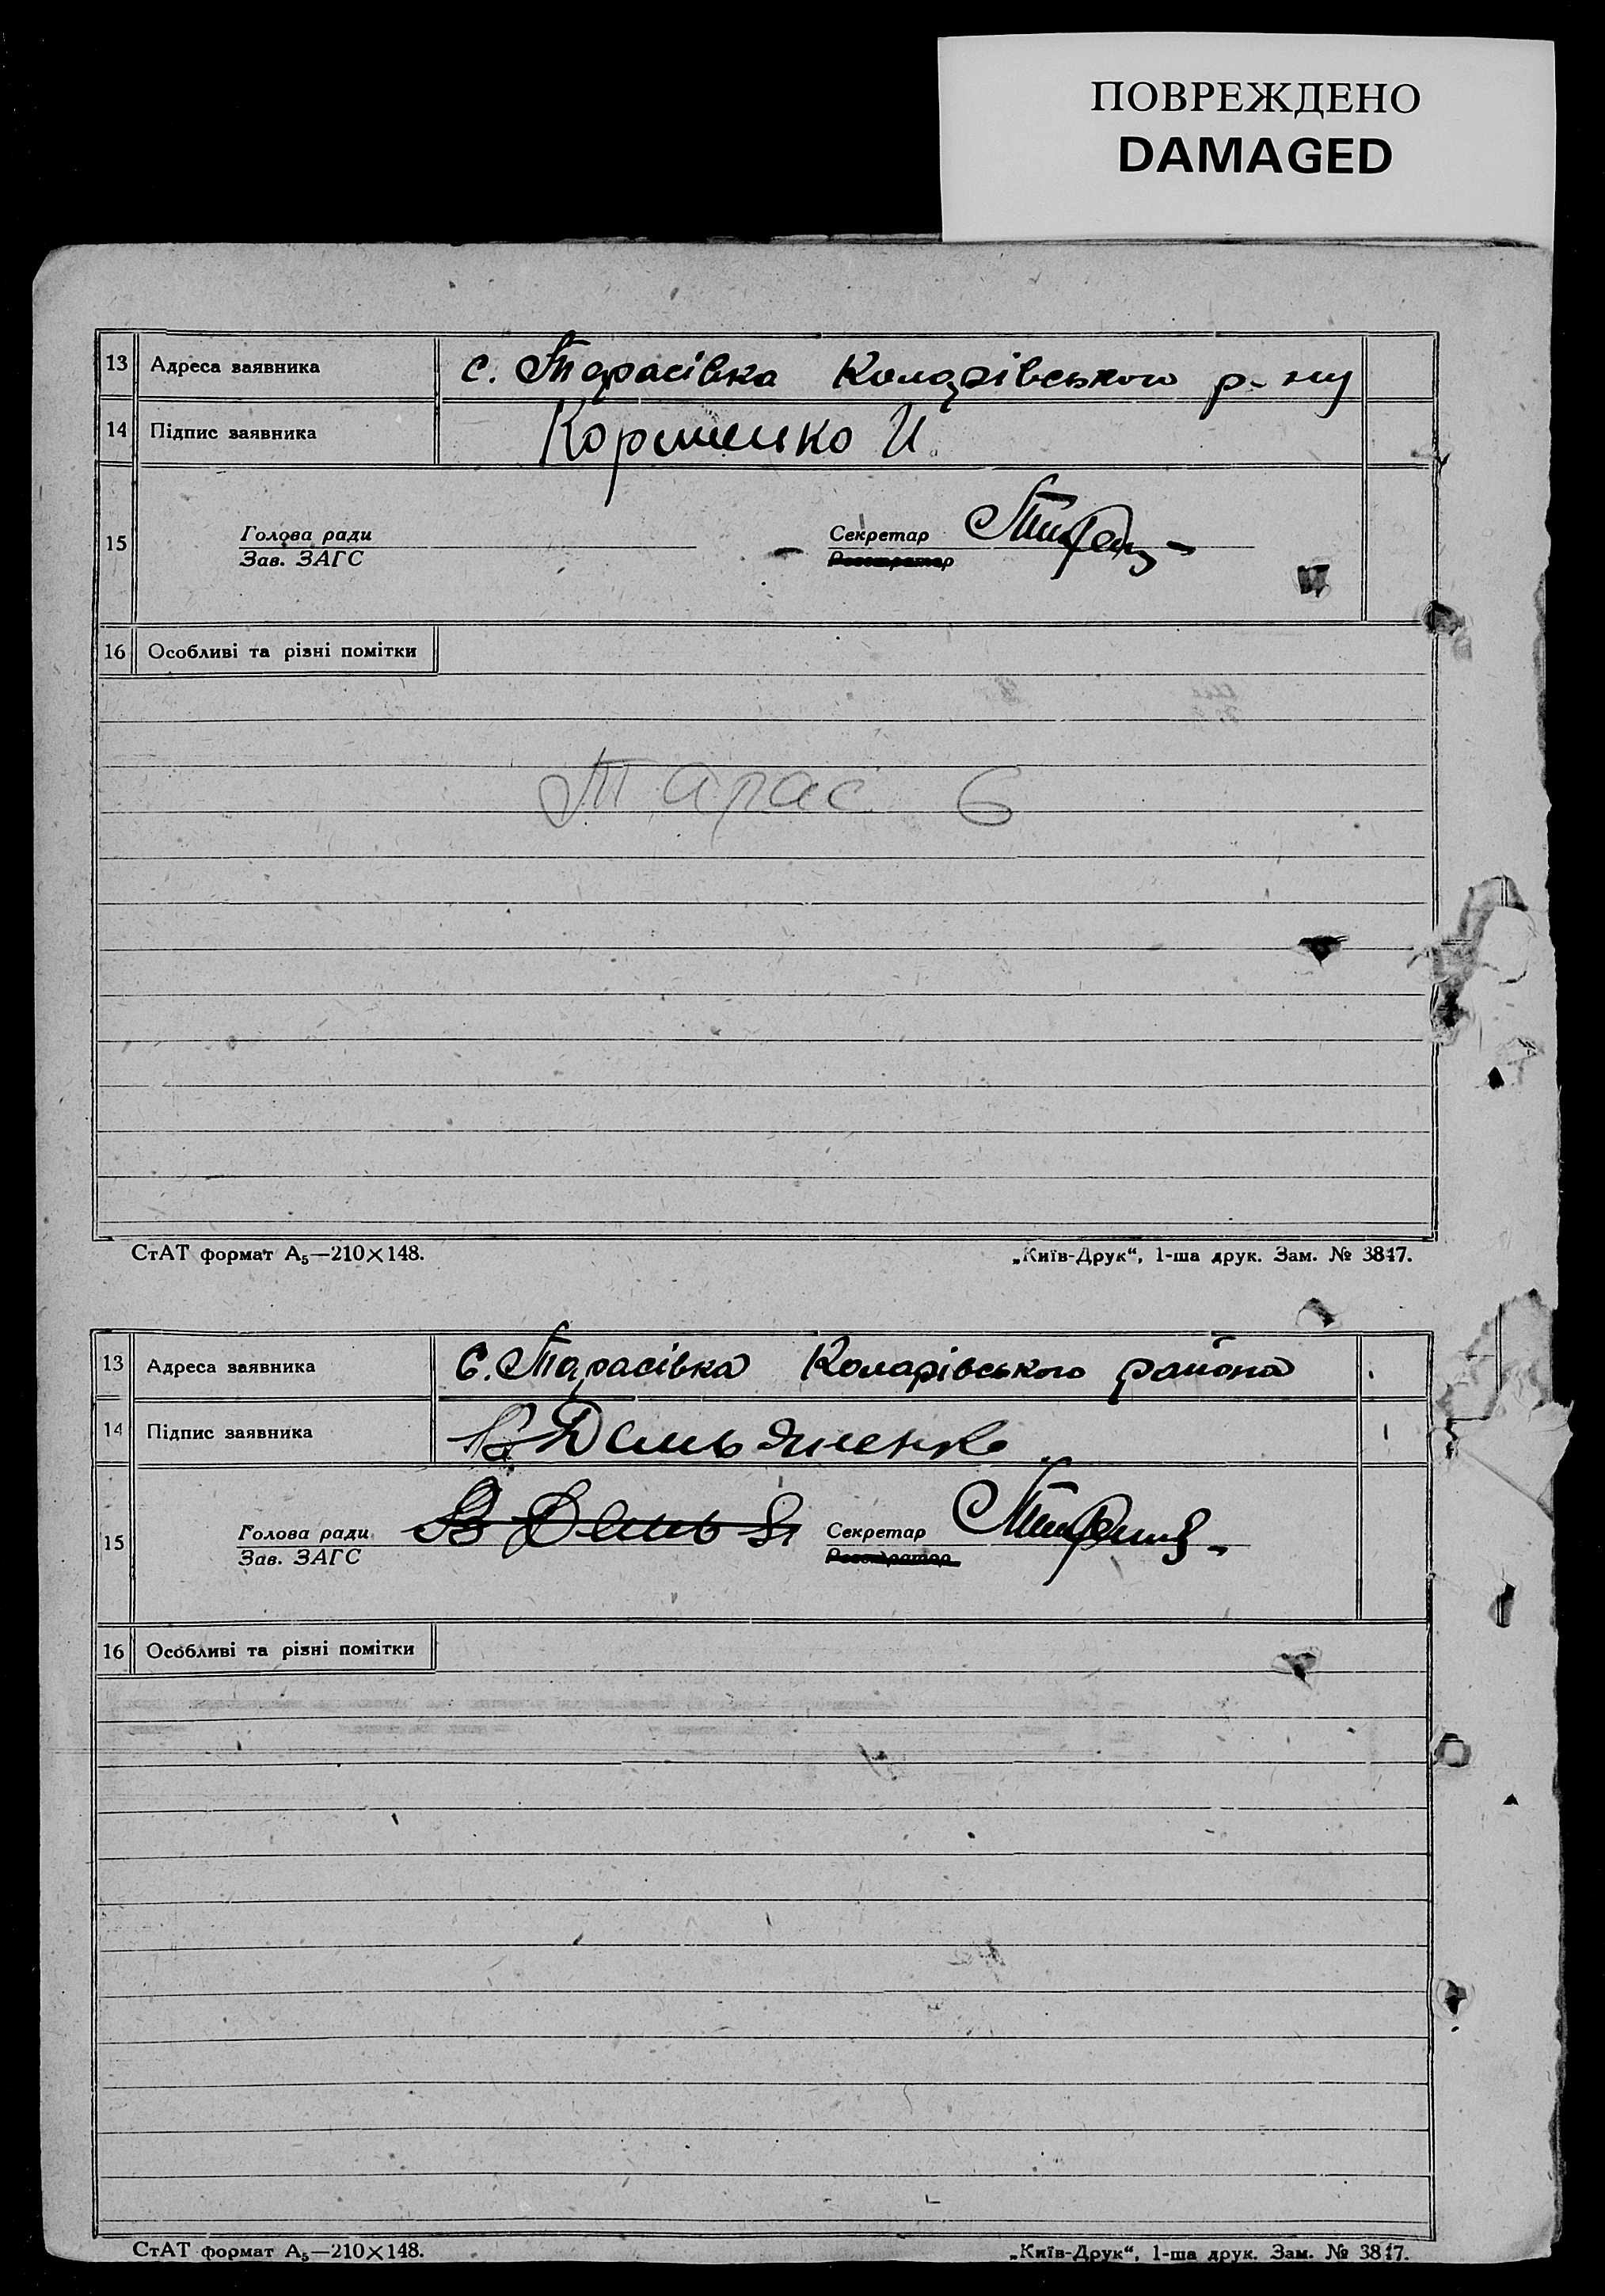 ПОВРЕЖДЕНО
DAMAGED
13 Адреса заявника с. Тарасівка Коларівського р-ну
14 Підпис заявника Коршенко И.
15 Голова ради Секретар
Зав. ЗАГС Реєстратор
16 Особливі та різні помітки
Тарас 6
СтАТ формат А₅—210×148. „Київ-Друк“, 1-ша друк. Зам. № 3817.
13 Адреса заявника С. Тарасівка Коларівського района
14 Підпис заявника В Демьяненко
15 Голова ради В Демья Секретар
Зав. ЗАГС Реєстратор
16 Особливі та різні помітки
СтАТ формат А₅—210×148. „Київ-Друк“, 1-ша друк. Зам. № 3817.